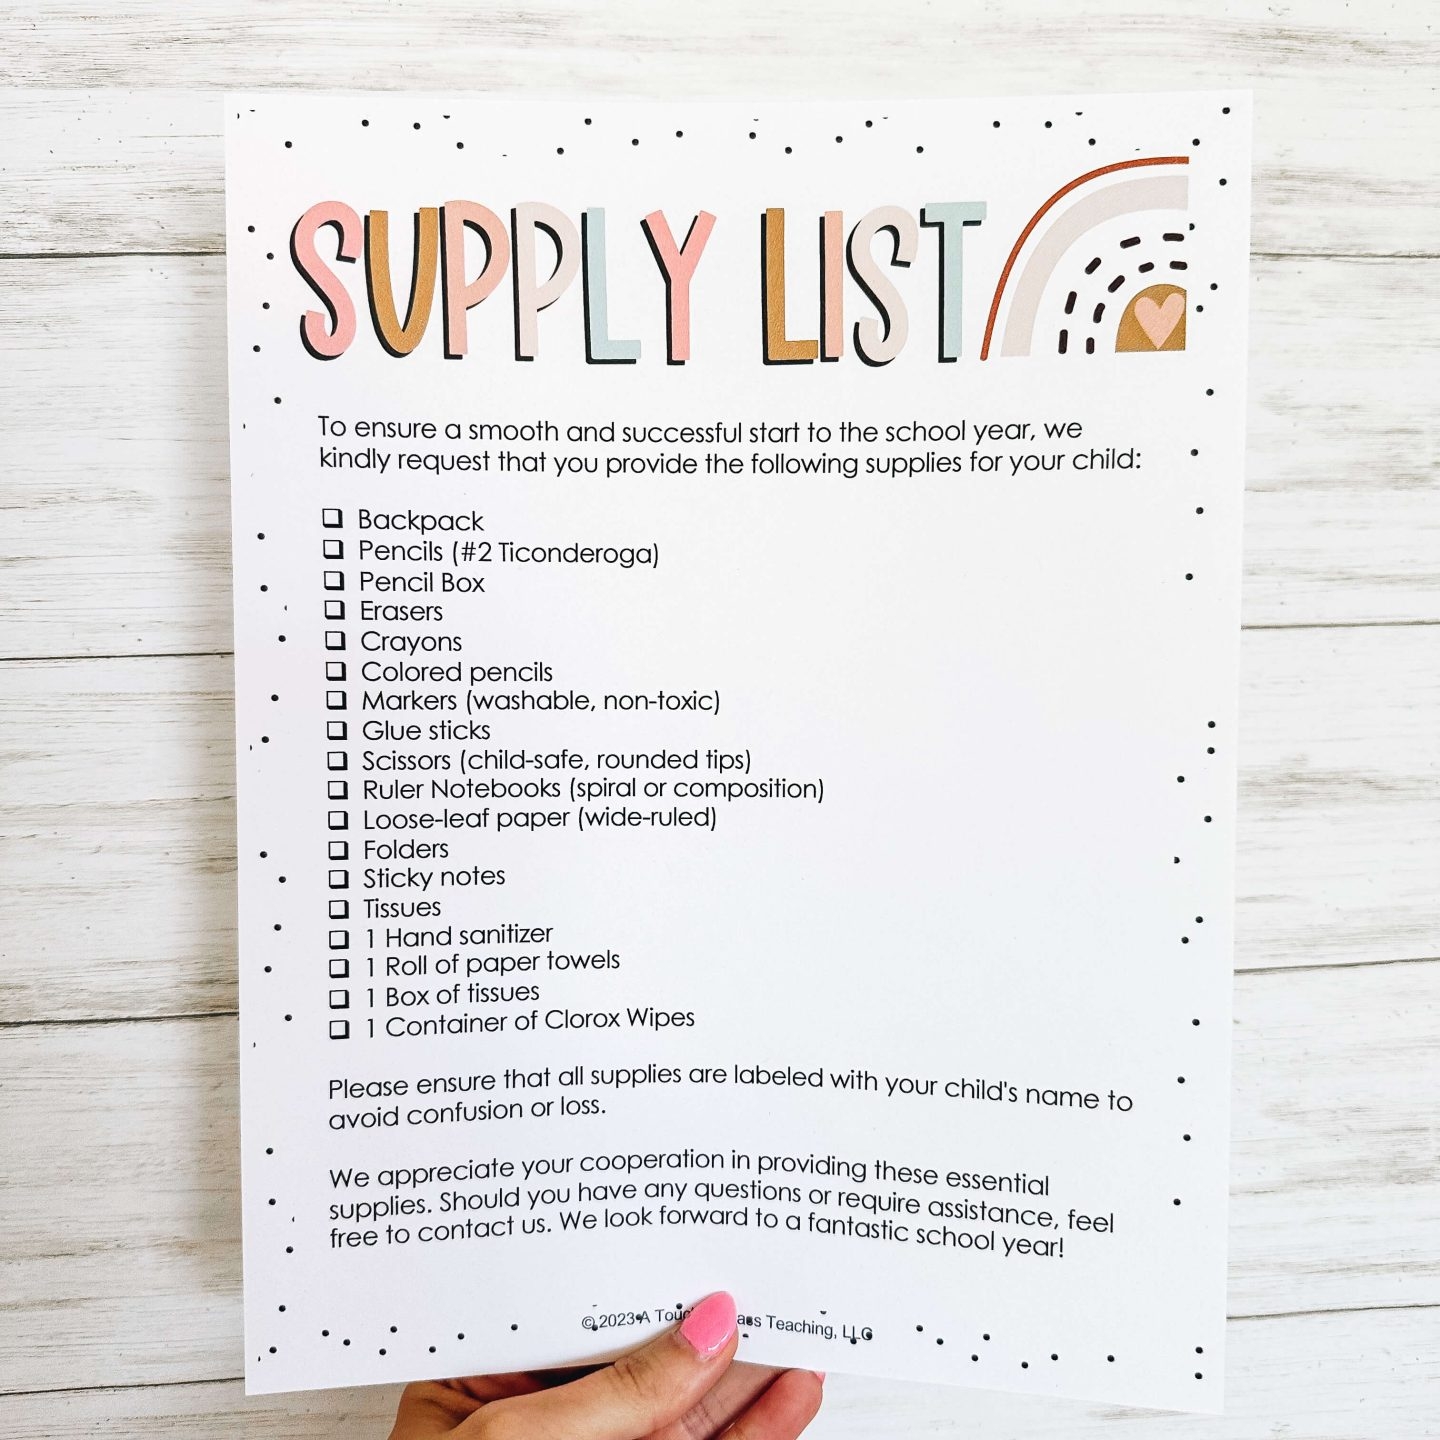 SUPPLY LIST
To ensure a smooth and successful start to the school year, we
kindly request that you provide the following supplies for your child:
❏ Backpack
❏ Pencils (#2 Ticonderoga)
❏ Pencil Box
❏ Erasers
❏ Crayons
❏ Colored pencils
❏ Markers (washable, non-toxic)
❏ Glue sticks
❏ Scissors (child-safe, rounded tips)
❏ Ruler Notebooks (spiral or composition)
❏ Loose-leaf paper (wide-ruled)
❏ Folders
❏ Sticky notes
❏ Tissues
❏ 1 Hand sanitizer
❏ 1 Roll of paper towels
❏ 1 Box of tissues
❏ 1 Container of Clorox Wipes
Please ensure that all supplies are labeled with your child's name to
avoid confusion or loss.
We appreciate your cooperation in providing these essential
supplies. Should you have any questions or require assistance, feel
free to contact us. We look forward to a fantastic school year!
©2023 A Teaching, LLC